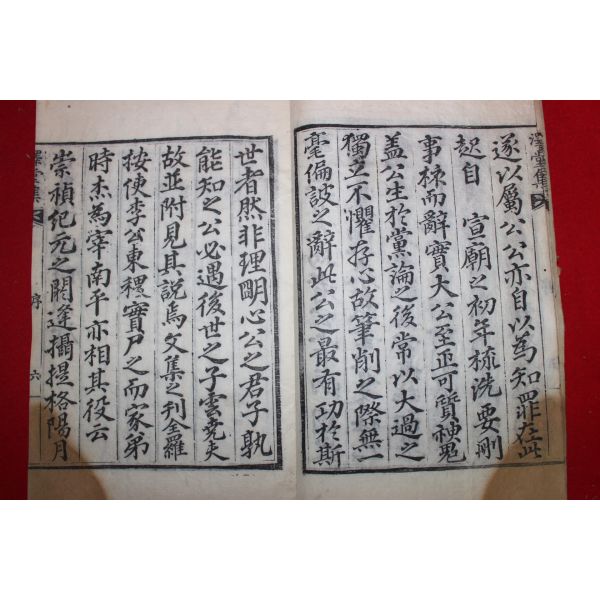 遂以屬公公亦自以爲知罪在此
起自 宣廟之初年梳洗要刪
事核而辭實大公至正可質神鬼
盖公生於黨論之後常以大過之
獨立不懼存心故筆削之際無一
毫偏詖之辭此公之最有功於斯
世者然非理明心公之君子孰
能知之公必遇後世之子雲堯夫
故並附見其說焉文集之刊全羅
按使李公東稷實尸之而家弟
時杰爲宰南平亦相其役云
崇禎紀元之閼逢攝提格陽月
澤堂集
序
六